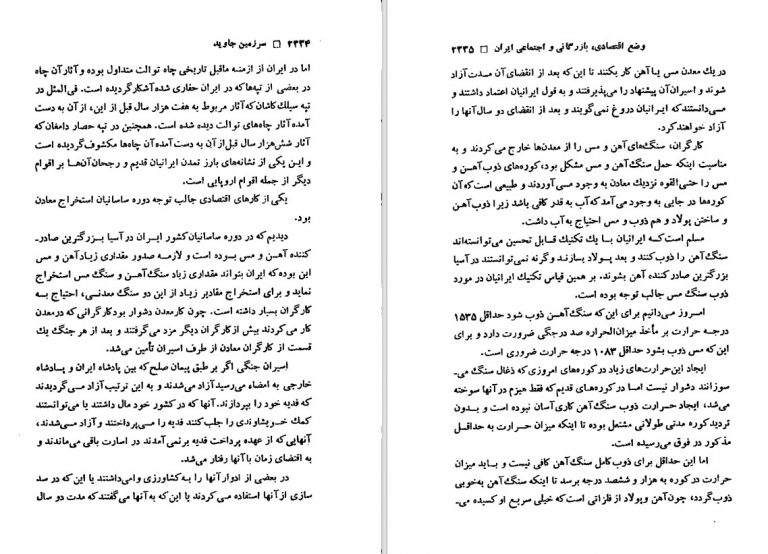 ۲۳۳۴ □ سرزمین جاوید
اما در ایران از ازمنه ماقبل تاریخی چاه توالت متداول بوده و آثار آن چاه
در بعضی از تپه‌ها که در ایران حفاری شده آشکار گردیده است. فی‌المثل در
تپه سیلک کاشان که آثار مربوط به هفت هزار سال قبل از این، از آن به دست
آمده آثار چاه‌های توالت دیده شده است. همچنین در تپه حصار دامغان که
آثار شش‌هزار سال قبل از آن به دست آمده آن چاه‌ها مکشوف گردیده است
و این یکی از نشانه‌های بارز تمدن ایرانیان قدیم و رجحان آن‌ها بر اقوام
دیگر از جمله اقوام اروپایی است.
یکی از کارهای اقتصادی جالب توجه دوره ساسانیان استخراج معادن
بود.
دیدیم که در دوره ساسانیان کشور ایران در آسیا بزرگترین صادر-
کننده آهن و مس بوده است و لازمه صدور مقداری زیاد آهن و مس
این بوده که ایران بتواند مقداری زیاد سنگ آهن و سنگ مس استخراج
نماید و برای استخراج مقادیر زیاد از این دو سنگ معدنی، احتیاج به
کارگران بسیار داشته است. چون کار معدن دشوار بود کارگرانی که در معدن
کار می‌کردند بیش از کارگران دیگر مزد می‌گرفتند و بعد از هر جنگ یک
قسمت از کارگران معادن از طرف اسیران تأمین می‌شد.
اسیران جنگی اگر بر طبق پیمان صلح که بین پادشاه ایران و پادشاه
خارجی به امضاء می‌رسید آزاد می‌شدند و به این ترتیب آزاد می‌گردیدند
که فدیه خود را بپردازند. آنها که در کشور خود مال داشتند یا می‌توانستند
کمک خویشاوندی را جلب کنند فدیه را می‌پرداختند و آزاد می‌شدند،
آنهایی که از عهده پرداخت فدیه بر نمی‌آمدند در اسارت باقی می‌ماندند و
به اقتضای زمان با آنها رفتار می‌شد.
در بعضی از ادوار آنها را به کشاورزی وامی‌داشتند یا این که در سد
سازی از آنها استفاده می‌کردند یا این که به آنها می‌گفتند که مدت دو سال
وضع اقتصادی، بازرگانی و اجتماعی ایران □ ۲۳۳۵
در یک معدن مس یا آهن کار بکنند تا این که بعد از انقضای آن مدت آزاد
شوند و اسیران آن پیشنهاد را می‌پذیرفتند و به قول ایرانیان اعتماد داشتند و
می‌دانستند که ایرانیان دروغ نمی‌گویند و بعد از انقضای دو سال آنها را
آزاد خواهند کرد.
کارگران، سنگ‌های آهن و مس را از معدن‌ها خارج می‌کردند و به
مناسبت اینکه حمل سنگ آهن و مس مشکل بود، کوره‌های ذوب آهن و
مس را حتی‌القوه نزدیک معادن به وجود می‌آوردند و طبیعی است که آن
کوره‌ها در جایی به وجود می‌آمد که آب به قدر کافی باشد زیرا ذوب آهن
و ساختن پولاد و هم ذوب و مس احتیاج به آب داشت.
مسلم است که ایرانیان با یک تکنیک قابل تحسین می‌توانسته‌اند
سنگ آهن را ذوب کنند و بعد پولاد بسازند و گرنه نمی‌توانستند در آسیا
بزرگترین صادر کننده آهن بشوند. بر همین قیاس تکنیک ایرانیان در مورد
ذوب سنگ مس جالب توجه بوده است.
امروز می‌دانیم برای این که سنگ آهن ذوب شود حداقل ۱۵۳۵
درجه حرارت بر مأخذ میزان‌الحراره صد درجگی ضرورت دارد و برای
این که مس ذوب بشود حداقل ۱۰۸۳ درجه حرارت ضروری است.
ایجاد این حرارت‌های زیاد در کوره‌های امروزی که ذغال سنگ می-
سوزانند دشوار نیست اما در کوره‌های قدیم که فقط هیزم در آنها سوخته
می‌شد، ایجاد حرارت ذوب سنگ آهن کاری آسان نبوده است و بدون
تردید کوره مدتی طولانی مشتعل بوده تا اینکه میزان حرارت به حداقل
مذکور در فوق می‌رسیده است.
اما این حداقل برای ذوب کامل سنگ آهن کافی نیست و باید میزان
حرارت در کوره به هزار و ششصد درجه برسد تا اینکه سنگ آهن به‌خوبی
ذوب گردد، چون آهن و پولاد از فلزاتی است که خیلی سریع اوکسیده می-